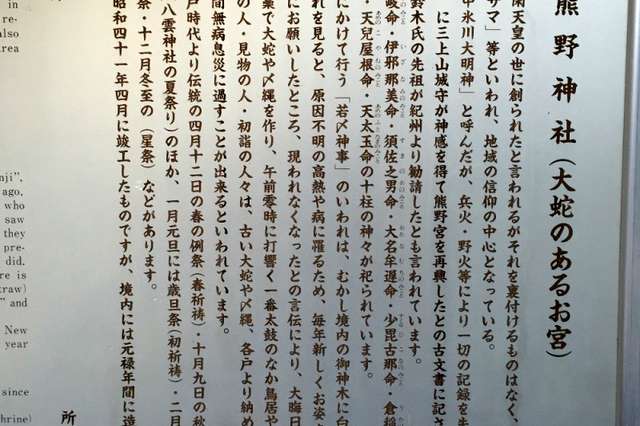 熊野神社(大蛇のあるお宮)
閑天皇の世に創られたと言われるがそれを裏付けるものはなく、
サマ」等といわれ、地域の信仰の中心となっている。
中氷川大明神」と呼んだが、兵火・野火等により一切の記録を失
に三上山城守が神感を得て熊野宮を再興したとの古文書に記さ
鈴木氏の先祖が紀州より勧請したとも言われています。
岐命・伊邪那美命・須佐之男命・大名牟遅命・少毘古那命・倉稲
・天児屋根命・天太玉命の十柱の神々が祀られています。
にかけて行う「若〆神事」のいわれは、むかし境内の御神木に白
れを見ると、原因不明の高熱や病に罹るため、毎年新しくお姿を
にお願いしたところ、現われなくなったとの言伝により、大晦日
藁で大蛇や〆縄を作り、午前零時に打響く一番太鼓のなか鳥居や
の人・見物の人・初詣の人々は、古い大蛇や〆縄、各戸より納め
間無病息災に過すことが出来るといわれています。
戸時代より伝統の四月十二日の春の例祭(春祈祷)・十月九日の秋
八雲神社の夏祭り)のほか、一月元旦には歳旦祭(初祈祷)・二月
祭・十二月冬至の(星祭)などがあります。
昭和四十一年四月に竣工したものですが、境内には元禄年間に造
所
in
re-
also
area
nji”,
ago,
who
saw
they
pre-
did.
re is
traw)
” and
New
year
since
hrine)